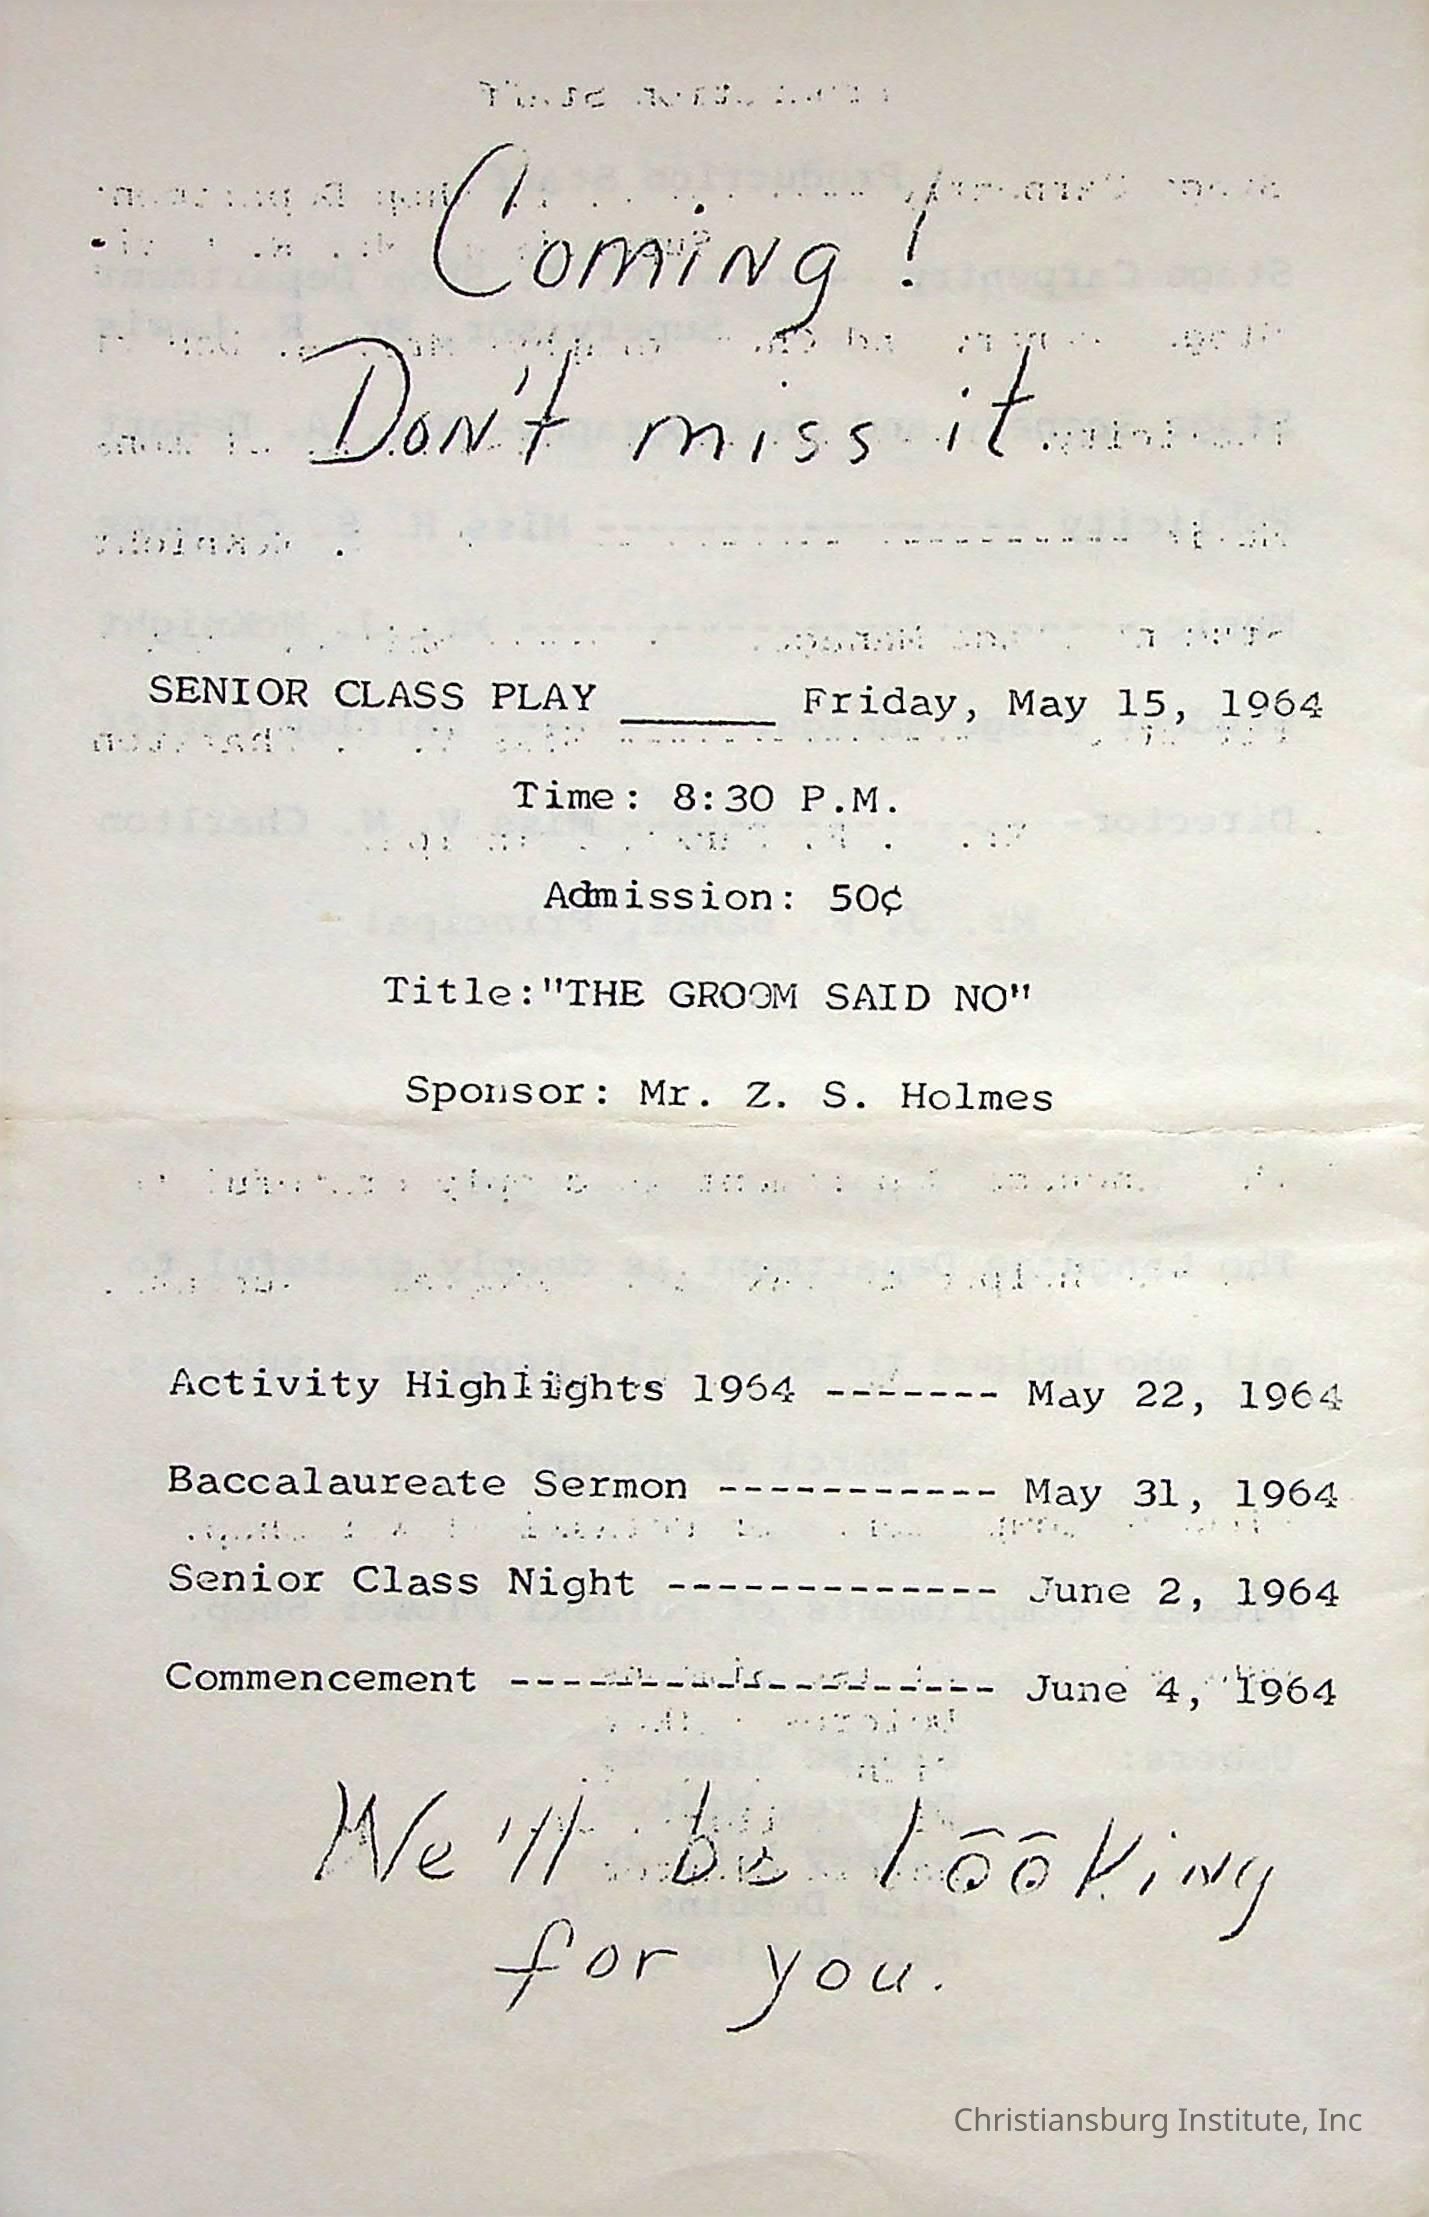 Coming!
Don't miss it.
SENIOR CLASS PLAY ______ Friday, May 15, 1964
Time: 8:30 P.M.
Admission: 50¢
Title:"THE GROOM SAID NO"
Sponsor: Mr. Z. S. Holmes
Activity Highlights 1964 ------- May 22, 1964
Baccalaureate Sermon ----------- May 31, 1964
Senior Class Night ------------- June 2, 1964
Commencement ------------------- June 4, 1964
We'll be looking
for you.
Christiansburg Institute, Inc